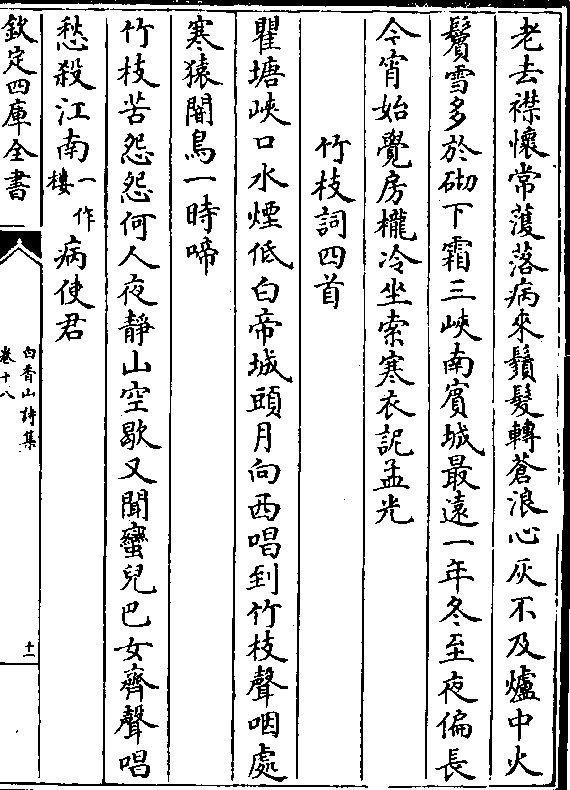 老去襟懷常濩落病來鬚髮轉蒼浪心灰不及爐中火
鬢雪多於砌下霜三峽南賓城最遠一年冬至夜偏長
今宵始覺房櫳冷坐索寒衣託孟光
竹枝詞四首
瞿塘峽口水煙低白帝城頭月向西唱到竹枝聲咽處
寒猿闇鳥一時啼
竹枝苦怨怨何人夜靜山空歇又聞蠻兒巴女齊聲唱
愁殺江南一作樓病使君
欽定四庫全書
白香山詩集
卷十八
十一